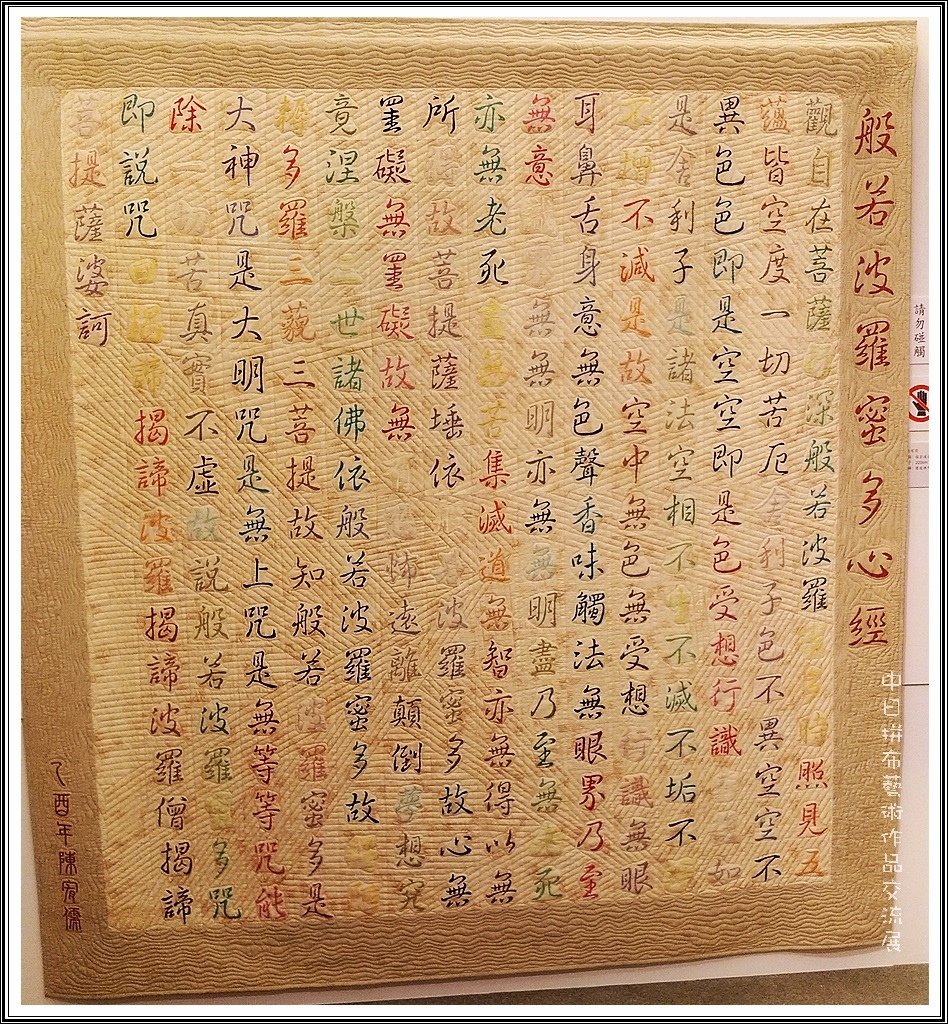 般若波羅蜜多心經
觀自在菩薩行深般若波羅蜜多時照見五
蘊皆空度一切苦厄舍利子色不異空空不
異色色即是空空即是色受想行識亦復如
是舍利子是諸法空相不生不滅不垢不淨
不增不減是故空中無色無受想行識無眼
耳鼻舌身意無色聲香味觸法無眼界乃至
無意識界無無明亦無無明盡乃至無老死
亦無老死盡無苦集滅道無智亦無得以無
所得故菩提薩埵依般若波羅蜜多故心無
罣礙無罣礙故無有恐怖遠離顛倒夢想究
竟涅槃三世諸佛依般若波羅蜜多故得阿
耨多羅三藐三菩提故知般若波羅蜜多是
大神咒是大明咒是無上咒是無等等咒能
除一切苦真實不虛故說般若波羅蜜多咒
即說咒曰揭諦揭諦波羅揭諦波羅僧揭諦
菩提薩婆訶
乙酉年陳
請勿碰觸
中日拼布藝術作品交流展